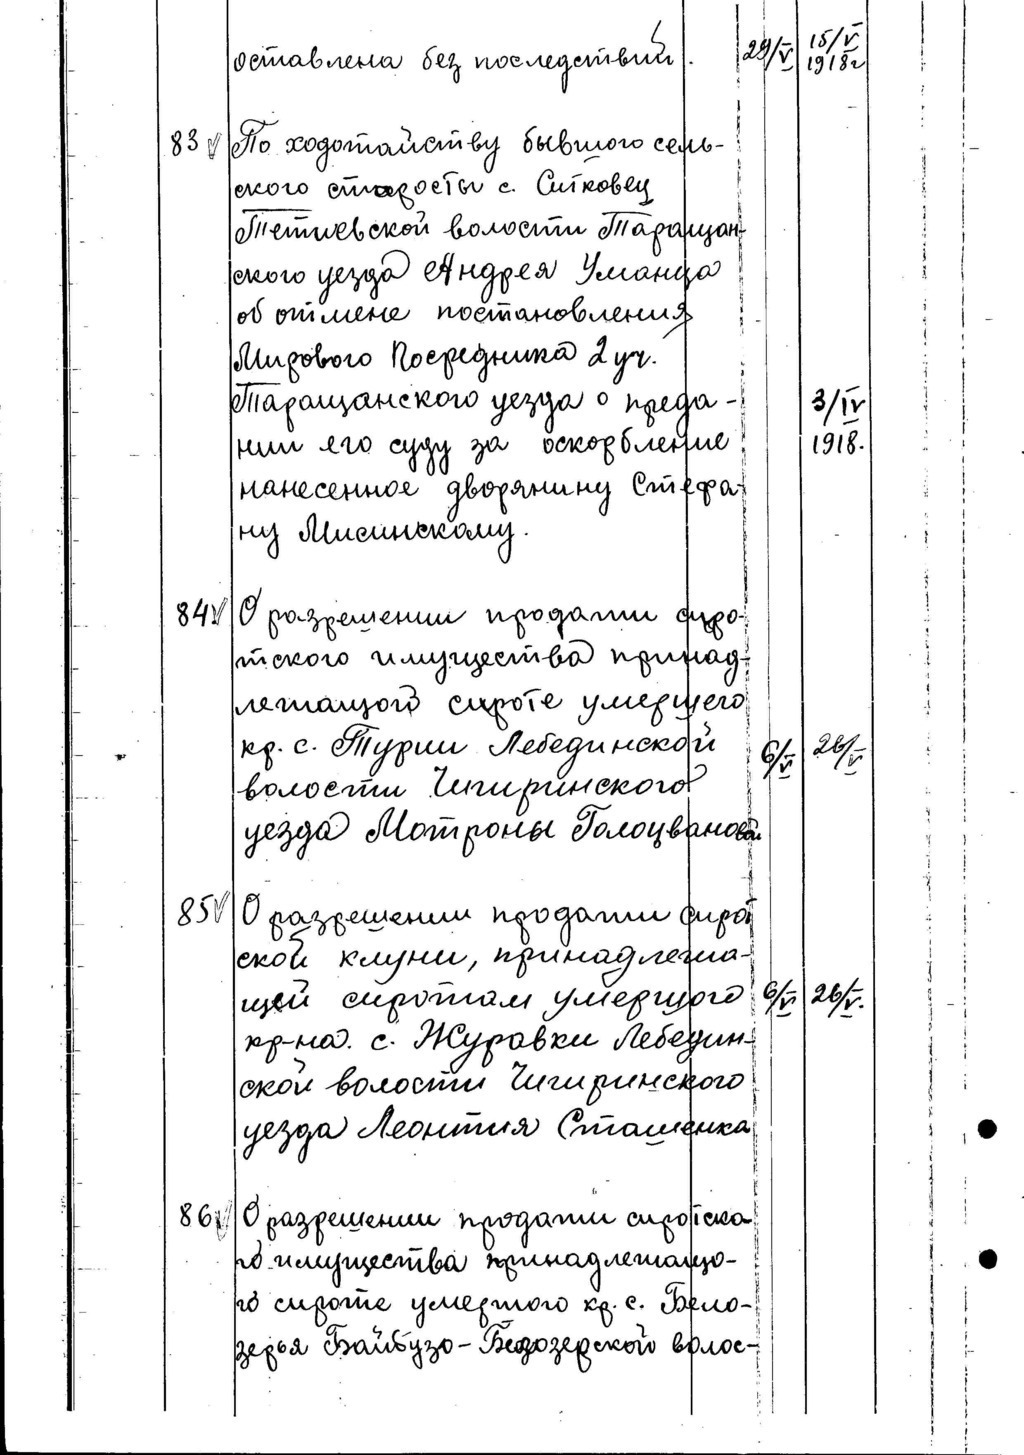 оставлена без последствий. 29/V 15/V
1918г
83 По ходотайству бывшого сель-
ского старосты с. Ситковец
Тетиевской волости Таращан-
ского уезда Андрея Уманца
об отмене постановления
Мирового Посредника 2 уч.
Таращанского уезда о преда- 3/IV
нии его суду за оскорбление 1918.
нанесенное дворянину Стефа-
ну Мисинскому.
84 О разрешении продати сиро-
тского имущества принад-
лежащого сироте умершего
кр. с. Турии Лебединской 6/V 26/V
волости Чигиринского
уезда Мотроны Голоцвановой
85 О разрешении продати сирот
ской клуни, принадлежа-
щей сиротам умершого 6/V 26/V.
кр-на. с. Журавки Лебедин-
ской волости Чигиринского
уезда Леонтия Сташенка
86 О разрешении продати сиротска
го имущества принадлежащо-
го сироте умершого кр. с. Бело-
зерья Байбузо-Белозерской волос-